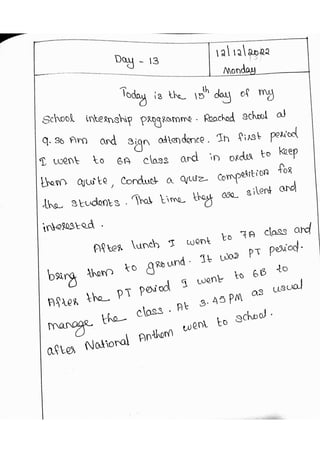 Day - 13
12/12/2022
Monday
Today is the 15th day of my
School internship programme. Reached school at
9.30 Am and sign attendence. In first period
I went to 6A class and in order to keep
them quite, Conduct a quiz competition for
the students. That time they are silent and
interested.
After lunch I went to 7A class and
being them to ground. It was PT period.
After the PT period I went to 6B to
manage the class. At 3.45 PM as usual
after National Anthem went to school.